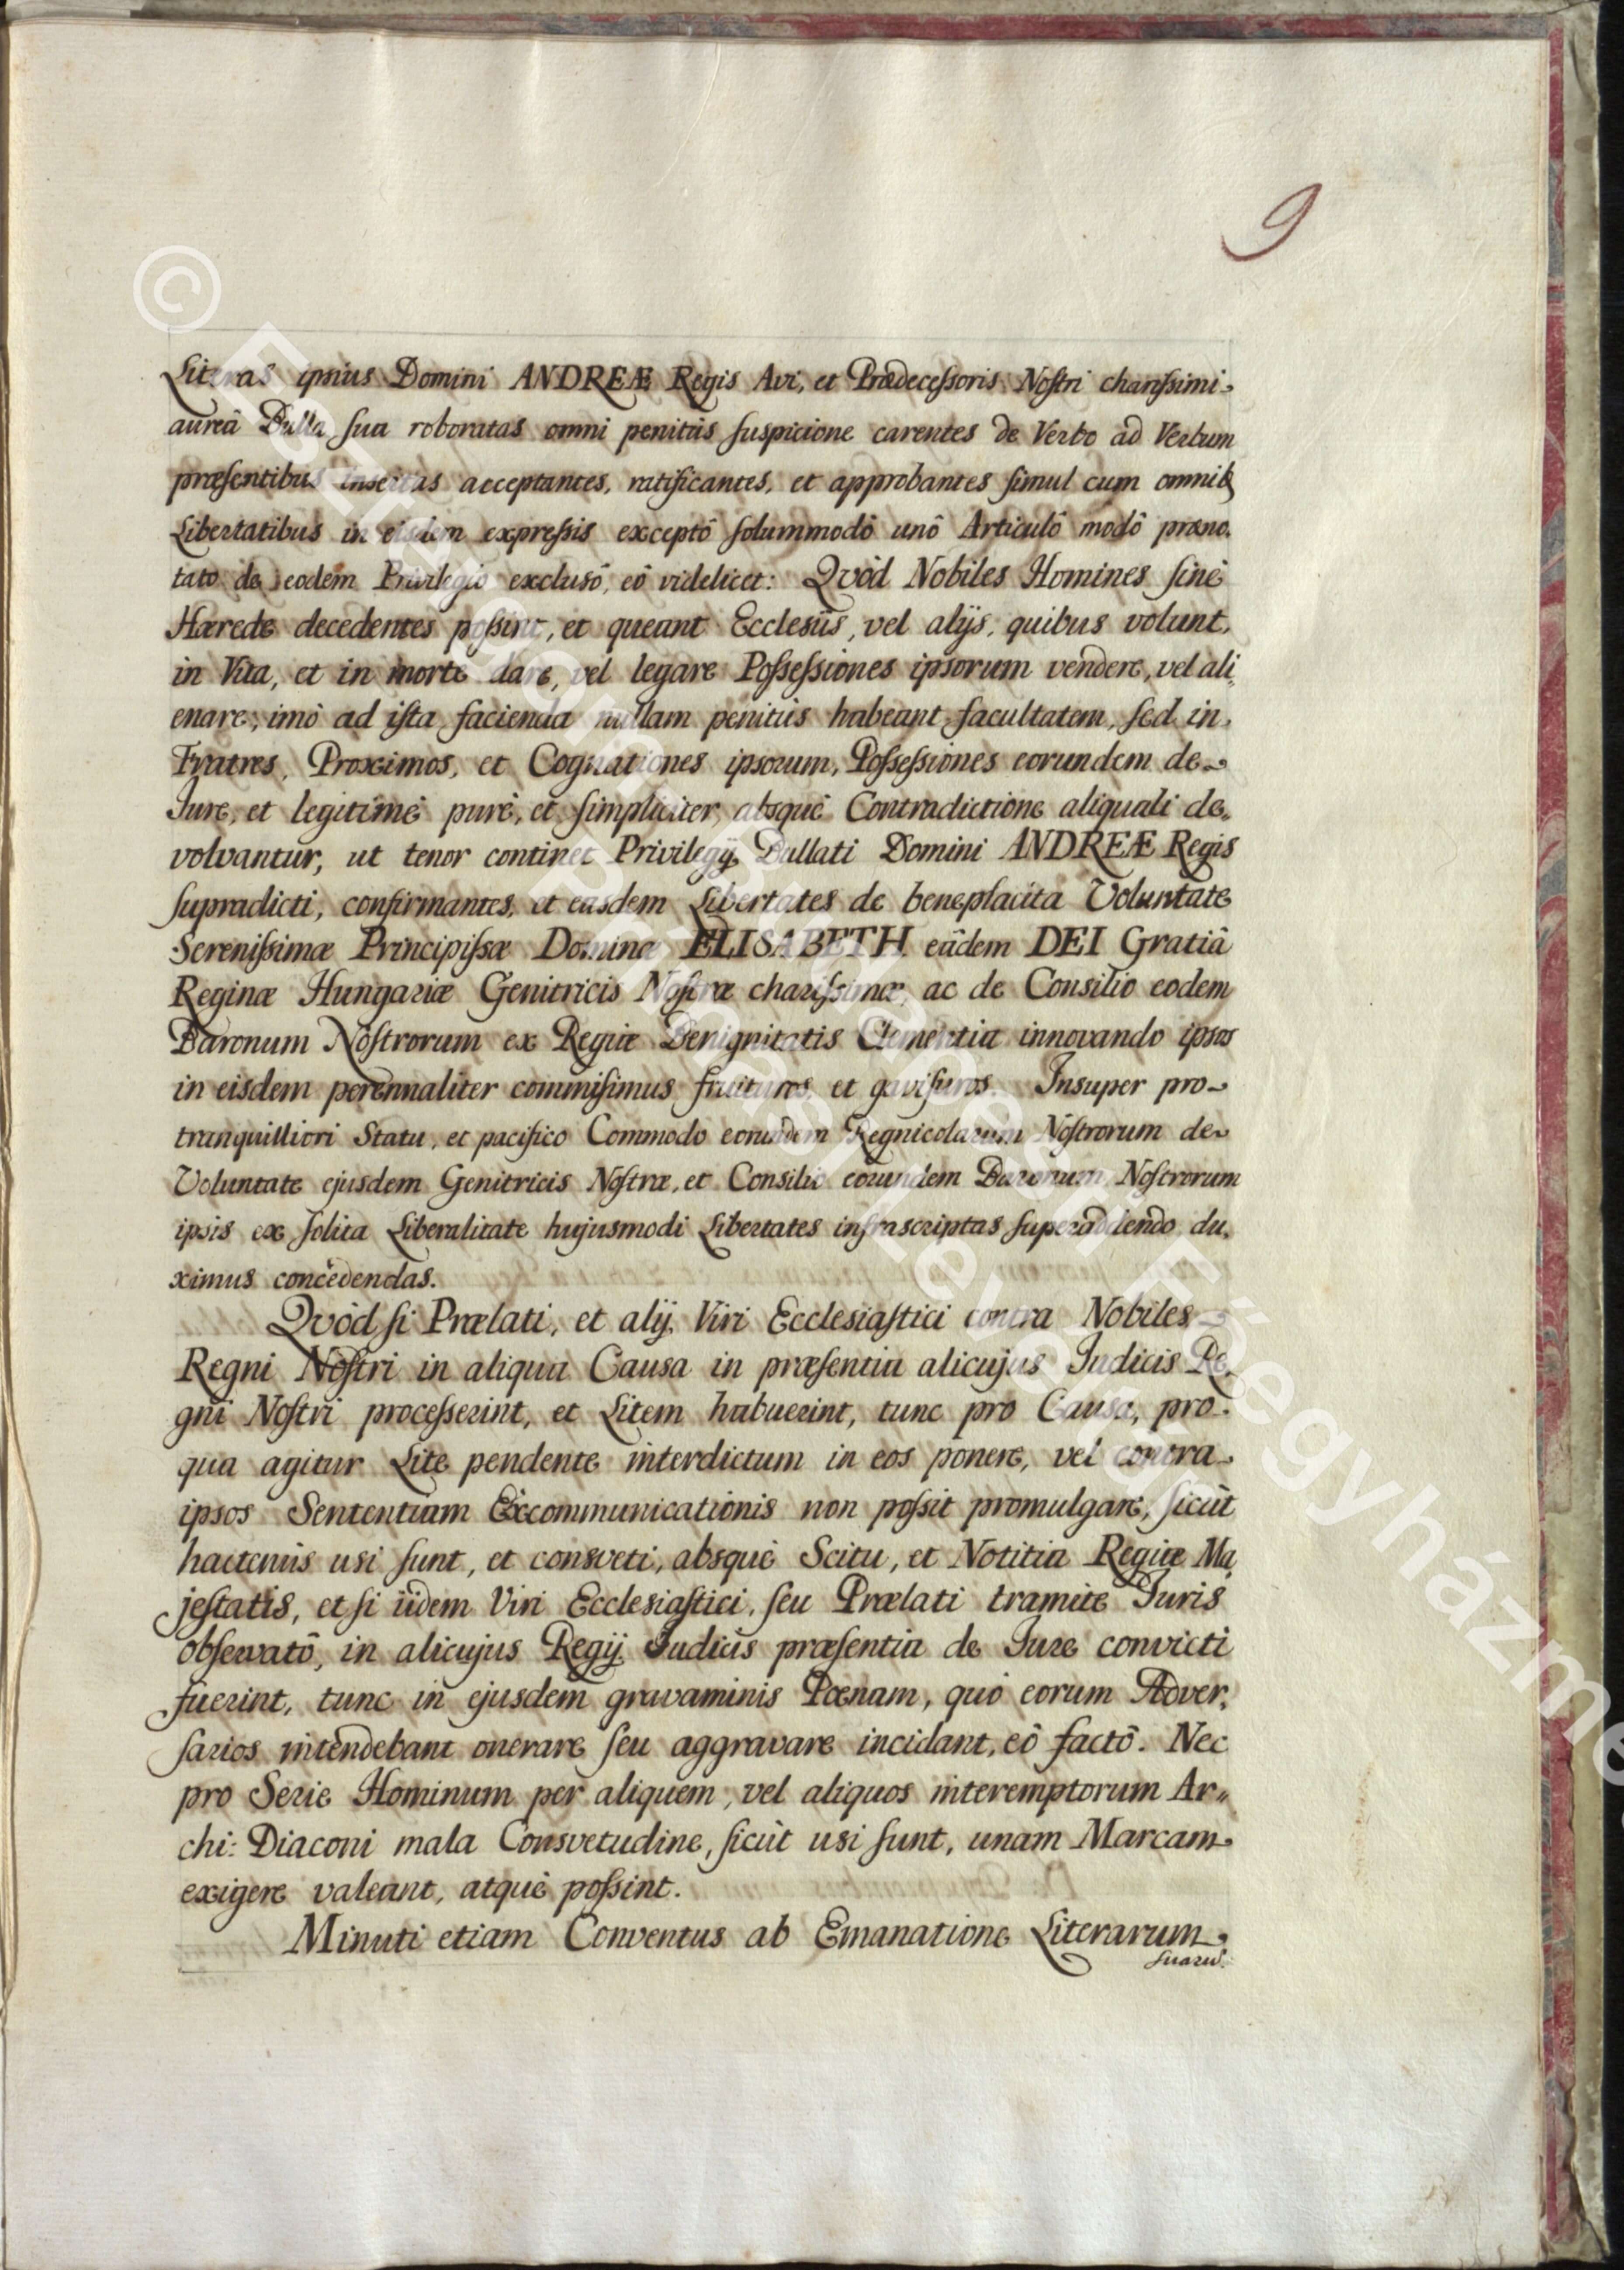 9
Literas ipsius Domini ANDREÆ Regis Avi, et Prædecessoris Nostri charissimi
aureâ Bulla sua roboratas omni penitùs suspicione carentes de Verbo ad Verbum
præsentibus insertas acceptantes, ratificantes, et approbantes simul cum omnib9
Libertatibus in eisdem expressis exceptô solummodò unô Articulô modô præno,
tato de eodem Privilegio exclusô, eô videlicet: Qvòd Nobiles Homines sinè
Hærede decedentes possint, et queant Ecclesiis, vel alijs, quibus volunt,
in Vita, et in morte dare, vel legare Possessiones ipsorum vendere, vel ali,,
enare, imò ad ista facienda nullam penitùs habeant facultatem, sed in
Fratres, Proximos, et Cognationes ipsorum, Possessiones eorundem de
Jure, et legitimè purè, et simpliciter, absquè Contradictione aliquali de,
volvantur, ut tenor continet Privilegij Bullati Domini ANDREÆ Regis
supradicti, confirmantes, et easdem Libertates de beneplacita Voluntate
Serenissimæ Principissæ Dominæ ELISABETH eâdem DEI Gratiâ
Reginæ Hungariæ Genitricis Nostræ charissimæ, ac de Consilio eodem
Baronum Nostrorum ex Regiæ Benignitatis Clementia innovando ipsos
in eisdem perennaliter commisimus fruituros, et gavisuros. Insuper pro
tranquilliori Statu, et pacifico Commodo eorundem Regnicolarum Nostrorum de
Voluntate ejusdem Genitricis Nostræ, et Consilio eorundem Baronum Nostrorum
ipsis ex solita Liberalitate hujusmodi Libertates infrascriptas superaddendo du,
ximus concedendas.
Qvòd si Prælati, et alij Viri Ecclesiastici contra Nobiles
Regni Nostri in aliqua Causa in præsentia alicujus Judicis Re,
gni Nostri processerint, et Litem habuerint, tunc pro Causa, pro
qua agitur Lite pendente interdictum in eos ponere, vel contra
ipsos Sententiam Excommunicationis non possit promulgare, sicùt
hactenùs usi sunt, et consveti, absquè Scitu, et Notitia Regiæ Ma,
jestatis, et si iidem Viri Ecclesiastici, seu Prælati tramite Juris
observatô, in alicujus Regij Judicis præsentia de Jure convicti
fuerint, tunc in ejusdem gravaminis Pœnam, quò eorum Adver,
sarios intendebant onerare seu aggravare incidant, eô factô. Nec
pro Serie Hominum per aliquem, vel aliquos interemptorum Ar,,
chi: Diaconi mala Consvetudine, sicùt usi sunt, unam Marcam
exigere valeant, atquè possint.
Minuti etiam Conventus ab Emanatione Literarum
suarũ.